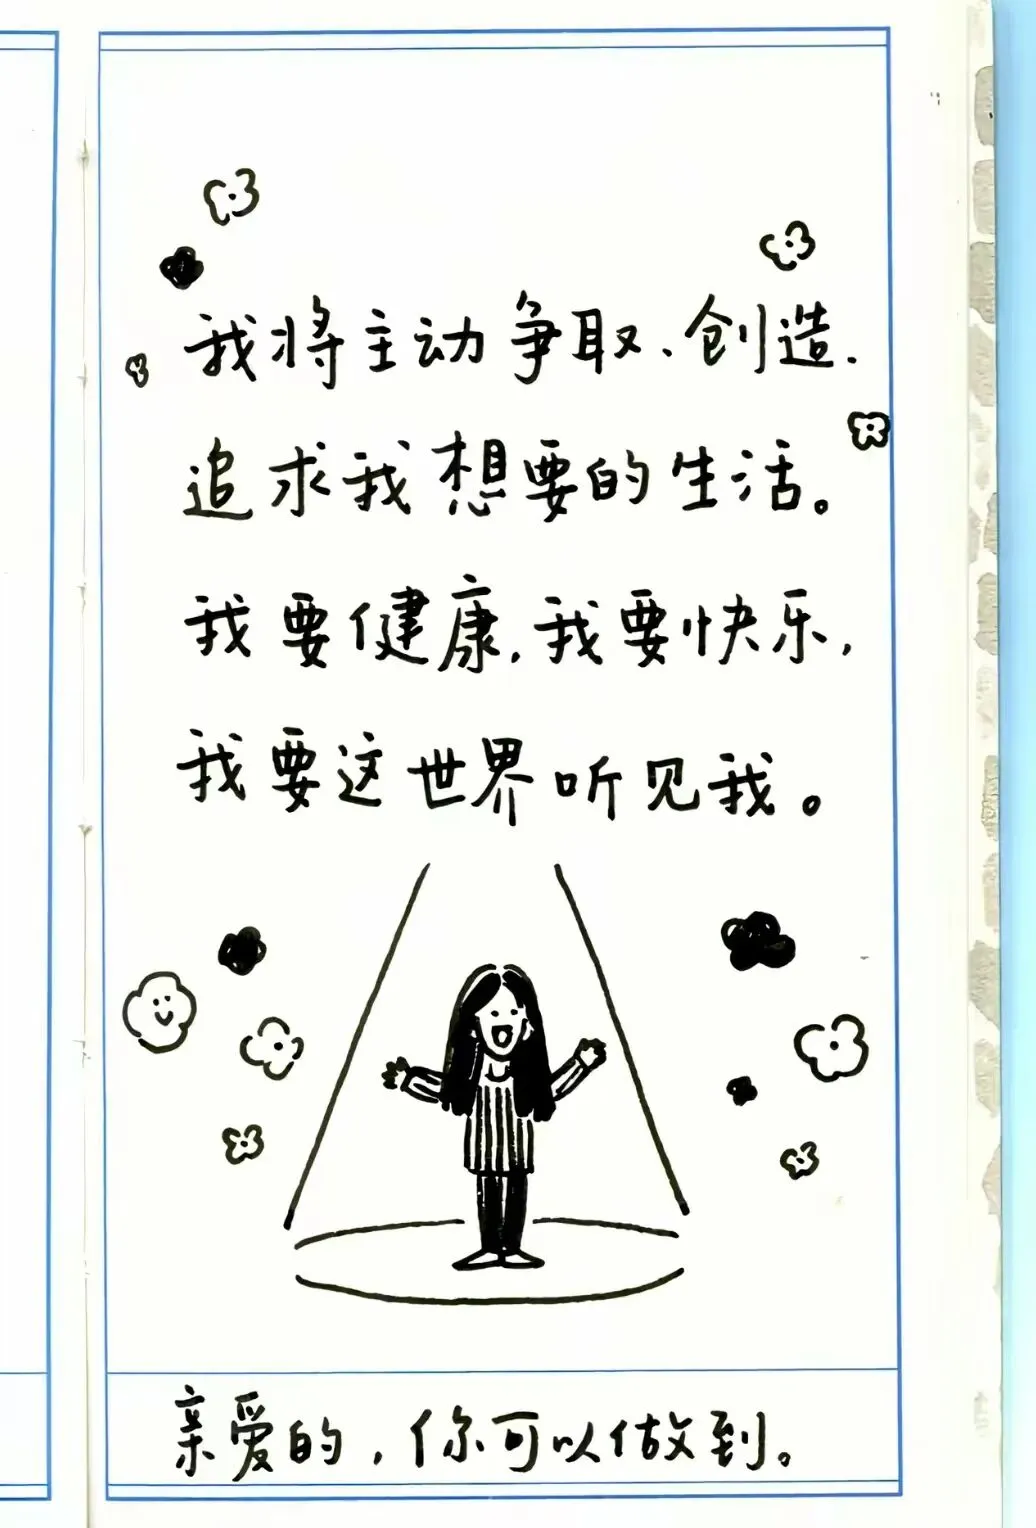 我将主动争取、创造、
追求我想要的生活。
我要健康,我要快乐,
我要这世界听见我。
亲爱的,你可以做到。